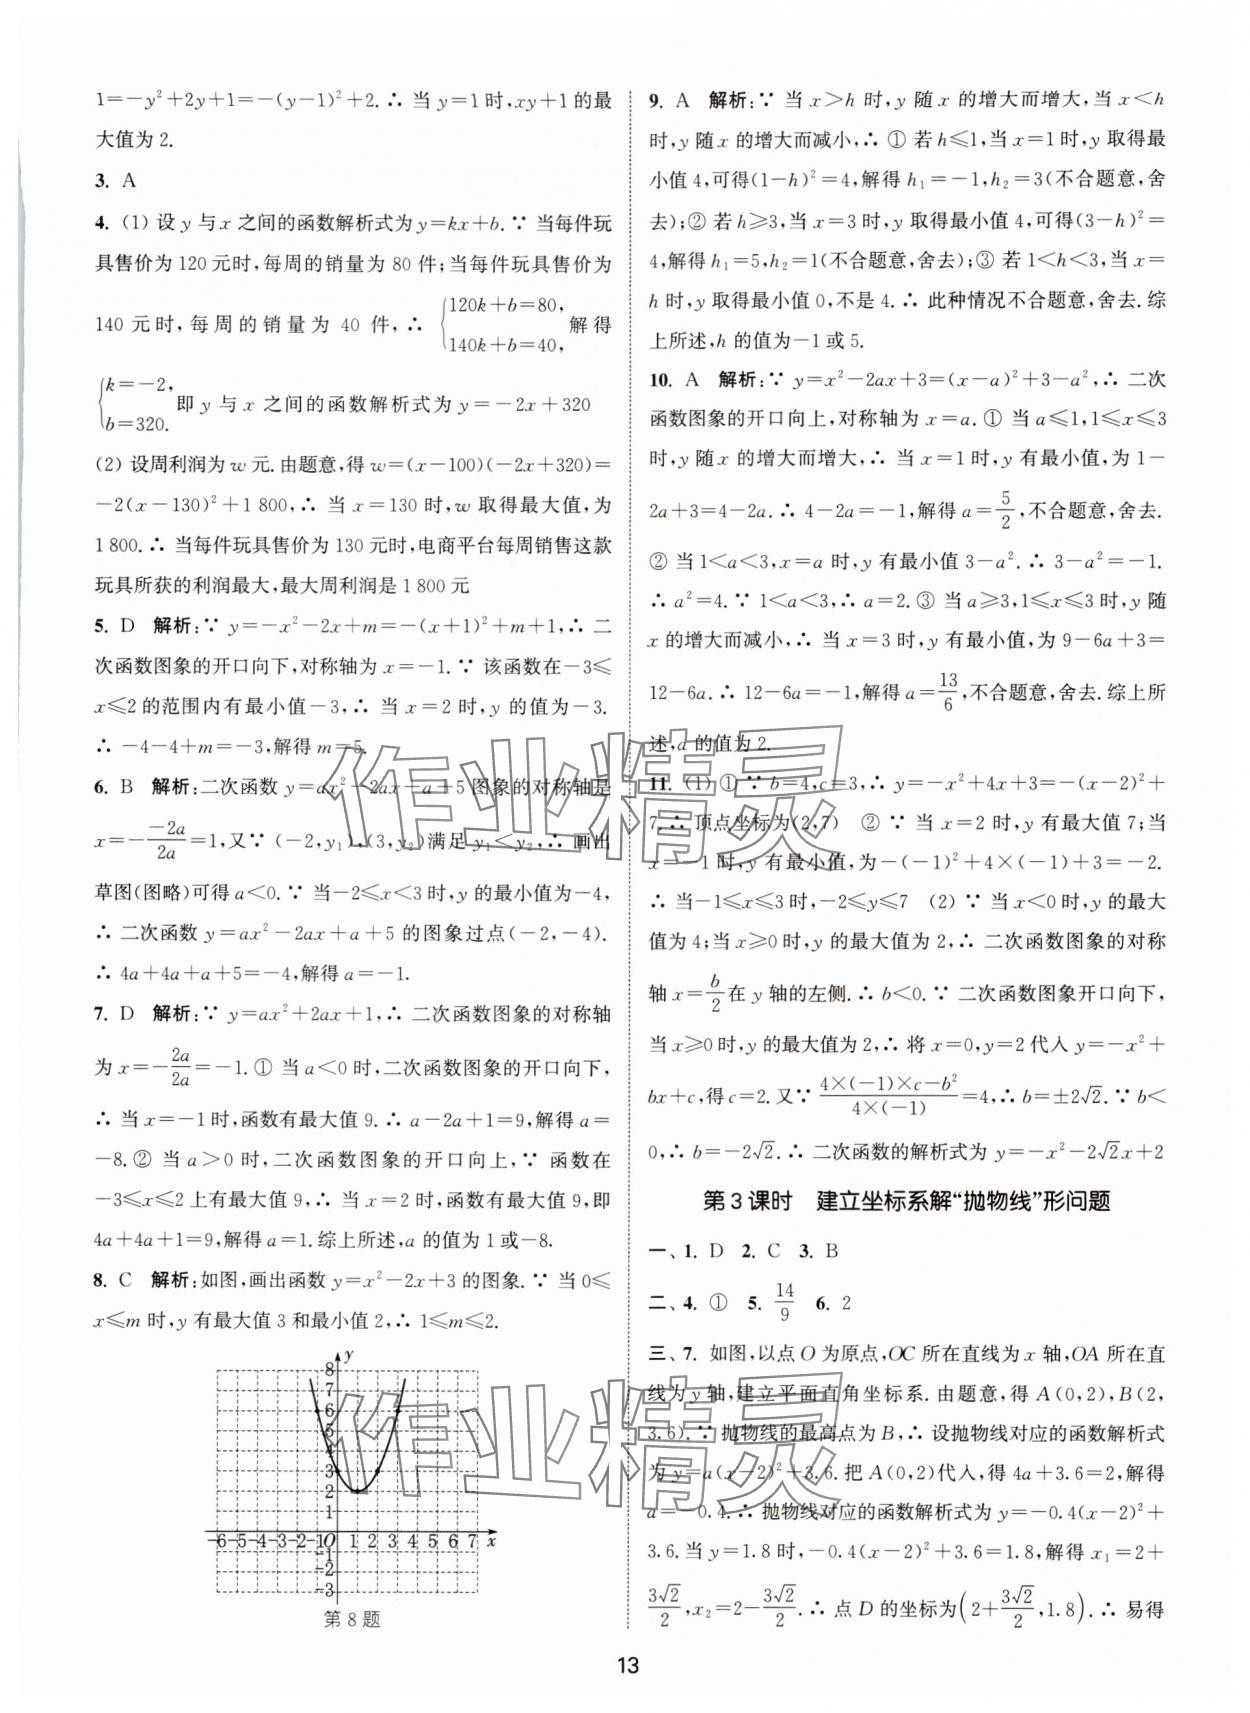 1=-y²+2y+1=-(y-1)²+2.∴ 当 y=1 时,xy+1 的最
大值为 2.
3. A
4. (1) 设 y 与 x 之间的函数解析式为 y=kx+b.∵ 当每件玩
具售价为 120 元时,每周的销量为 80 件;当每件玩具售价为
140 元时,每周的销量为 40 件,∴ {120k+b=80, 140k+b=40, 解得
{k=-2, b=320. 即 y 与 x 之间的函数解析式为 y=-2x+320
(2) 设周利润为 w 元.由题意,得 w=(x-100)(-2x+320)=
-2(x-130)²+1 800,∴ 当 x=130 时,w 取得最大值,为
1 800.∴ 当每件玩具售价为 130 元时,电商平台每周销售这款
玩具所获的利润最大,最大周利润是 1 800 元
5. D 解析:∵ y=-x²-2x+m=-(x+1)²+m+1,∴ 二
次函数图象的开口向下,对称轴为 x=-1.∵ 该函数在-3≤
x≤2 的范围内有最小值-3,∴ 当 x=2 时,y 的值为-3.
∴ -4-4+m=-3,解得 m=5.
6. B 解析:二次函数 y=ax²-2ax+a+5 图象的对称轴是
x=-\frac{-2a}{2a}=1,又∵ (-2,y₁),(3,y₂)满足 y₁<y₂,∴ 画出
草图(图略)可得 a<0.∵ 当-2≤x<3 时,y 的最小值为-4,
∴ 二次函数 y=ax²-2ax+a+5 的图象过点(-2,-4).
∴ 4a+4a+a+5=-4,解得 a=-1.
7. D 解析:∵ y=ax²+2ax+1,∴ 二次函数图象的对称轴
为 x=-\frac{2a}{2a}=-1.① 当 a<0 时,二次函数图象的开口向下,
∴ 当 x=-1 时,函数有最大值 9.∴ a-2a+1=9,解得 a=
-8.② 当 a>0 时,二次函数图象的开口向上,∵ 函数在
-3≤x≤2 上有最大值 9,∴ 当 x=2 时,函数有最大值,即
4a+4a+1=9,解得 a=1.综上所述,a 的值为 1 或-8.
8. C 解析:如图,画出函数 y=x²-2x+3 的图象.∵ 当 0≤
x≤m 时,y 有最大值 3 和最小值 2,∴ 1≤m≤2.
y
8
7
6
5
4
3
2
1
-6-5-4-3-2-1O 1 2 3 4 5 6 7 x
-1
-2
-3
第 8 题
9. A 解析:∵ 当 x>h 时,y 随 x 的增大而增大,当 x<h
时,y 随 x 的增大而减小,∴ ① 若 h≤1,当 x=1 时,y 取得最
小值 4,可得(1-h)²=4,解得 h₁=-1,h₂=3(不合题意,舍
去);② 若 h≥3,当 x=3 时,y 取得最小值 4,可得(3-h)²=
4,解得 h₁=5,h₂=1(不合题意,舍去);③ 若 1<h<3,当 x=
h 时,y 取得最小值 0,不是 4.∴ 此种情况不合题意,舍去.综
上所述,h 的值为-1 或 5.
10. A 解析:∵ y=x²-2ax+3=(x-a)²+3-a²,∴ 二次
函数图象的开口向上,对称轴为 x=a.① 当 a≤1,1≤x≤3
时,y 随 x 的增大而增大,∴ 当 x=1 时,y 有最小值,为 1-
2a+3=4-2a.∴ 4-2a=-1,解得 a=\frac{5}{2},不合题意,舍去.
② 当 1<a<3,x=a 时,y 有最小值 3-a².∴ 3-a²=-1.
∴ a²=4.∵ 1<a<3,∴ a=2.③ 当 a≥3,1≤x≤3 时,y 随
x 的增大而减小,∴ 当 x=3 时,y 有最小值,为 9-6a+3=
12-6a.∴ 12-6a=-1,解得 a=\frac{13}{6},不合题意,舍去.综上所
述,a 的值为 2.
11. (1) ① ∵ b=4,c=3,∴ y=-x²+4x+3=-(x-2)²+
7.∴ 顶点坐标为(2,7) ② ∵ 当 x=2 时,y 有最大值 7;当
x=-1 时,y 有最小值,为-(-1)²+4×(-1)+3=-2.
∴ 当-1≤x≤3 时,-2≤y≤7 (2) ∵ 当 x<0 时,y 的最大
值为 4;当 x≥0 时,y 的最大值为 2,∴ 二次函数图象的对称
轴 x=\frac{b}{2}在 y 轴的左侧.∴ b<0.∵ 二次函数图象开口向下,
当 x≥0 时,y 的最大值为 2,∴ 将 x=0,y=2 代入 y=-x²+
bx+c,得 c=2.又∵ \frac{4×(-1)×c-b²}{4×(-1)}=4,∴ b=±2√2.∵ b<
0,∴ b=-2√2.∴ 二次函数的解析式为 y=-x²-2√2x+2
第 3 课时 建立坐标系解“抛物线”形问题
一、1. D 2. C 3. B
二、4. ① 5. \frac{14}{9} 6. 2
三、7. 如图,以点 O 为原点,OC 所在直线为 x 轴,OA 所在直
线为 y 轴,建立平面直角坐标系.由题意,得 A(0,2),B(2,
3.6).∵ 抛物线的最高点为 B,∴ 设抛物线对应的函数解析式
为 y=a(x-2)²+3.6.把 A(0,2)代入,得 4a+3.6=2,解得
a=-0.4.∴ 抛物线对应的函数解析式为 y=-0.4(x-2)²+
3.6.当 y=1.8 时,-0.4(x-2)²+3.6=1.8,解得 x₁=2+
\frac{3√2}{2},x₂=2-\frac{3√2}{2}.∴ 点 D 的坐标为(2+\frac{3√2}{2},1.8).∴ 易得
13
作业精灵
作业精灵